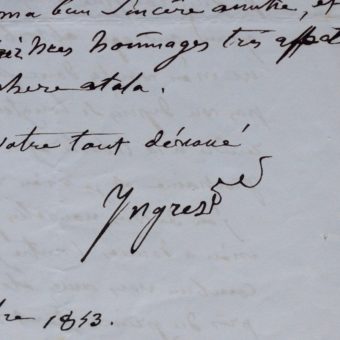 ma bien Sincère amitié, et
mes hommages très affect
chere atala.
Votre tout dévoué
Ingres
bre 1853.